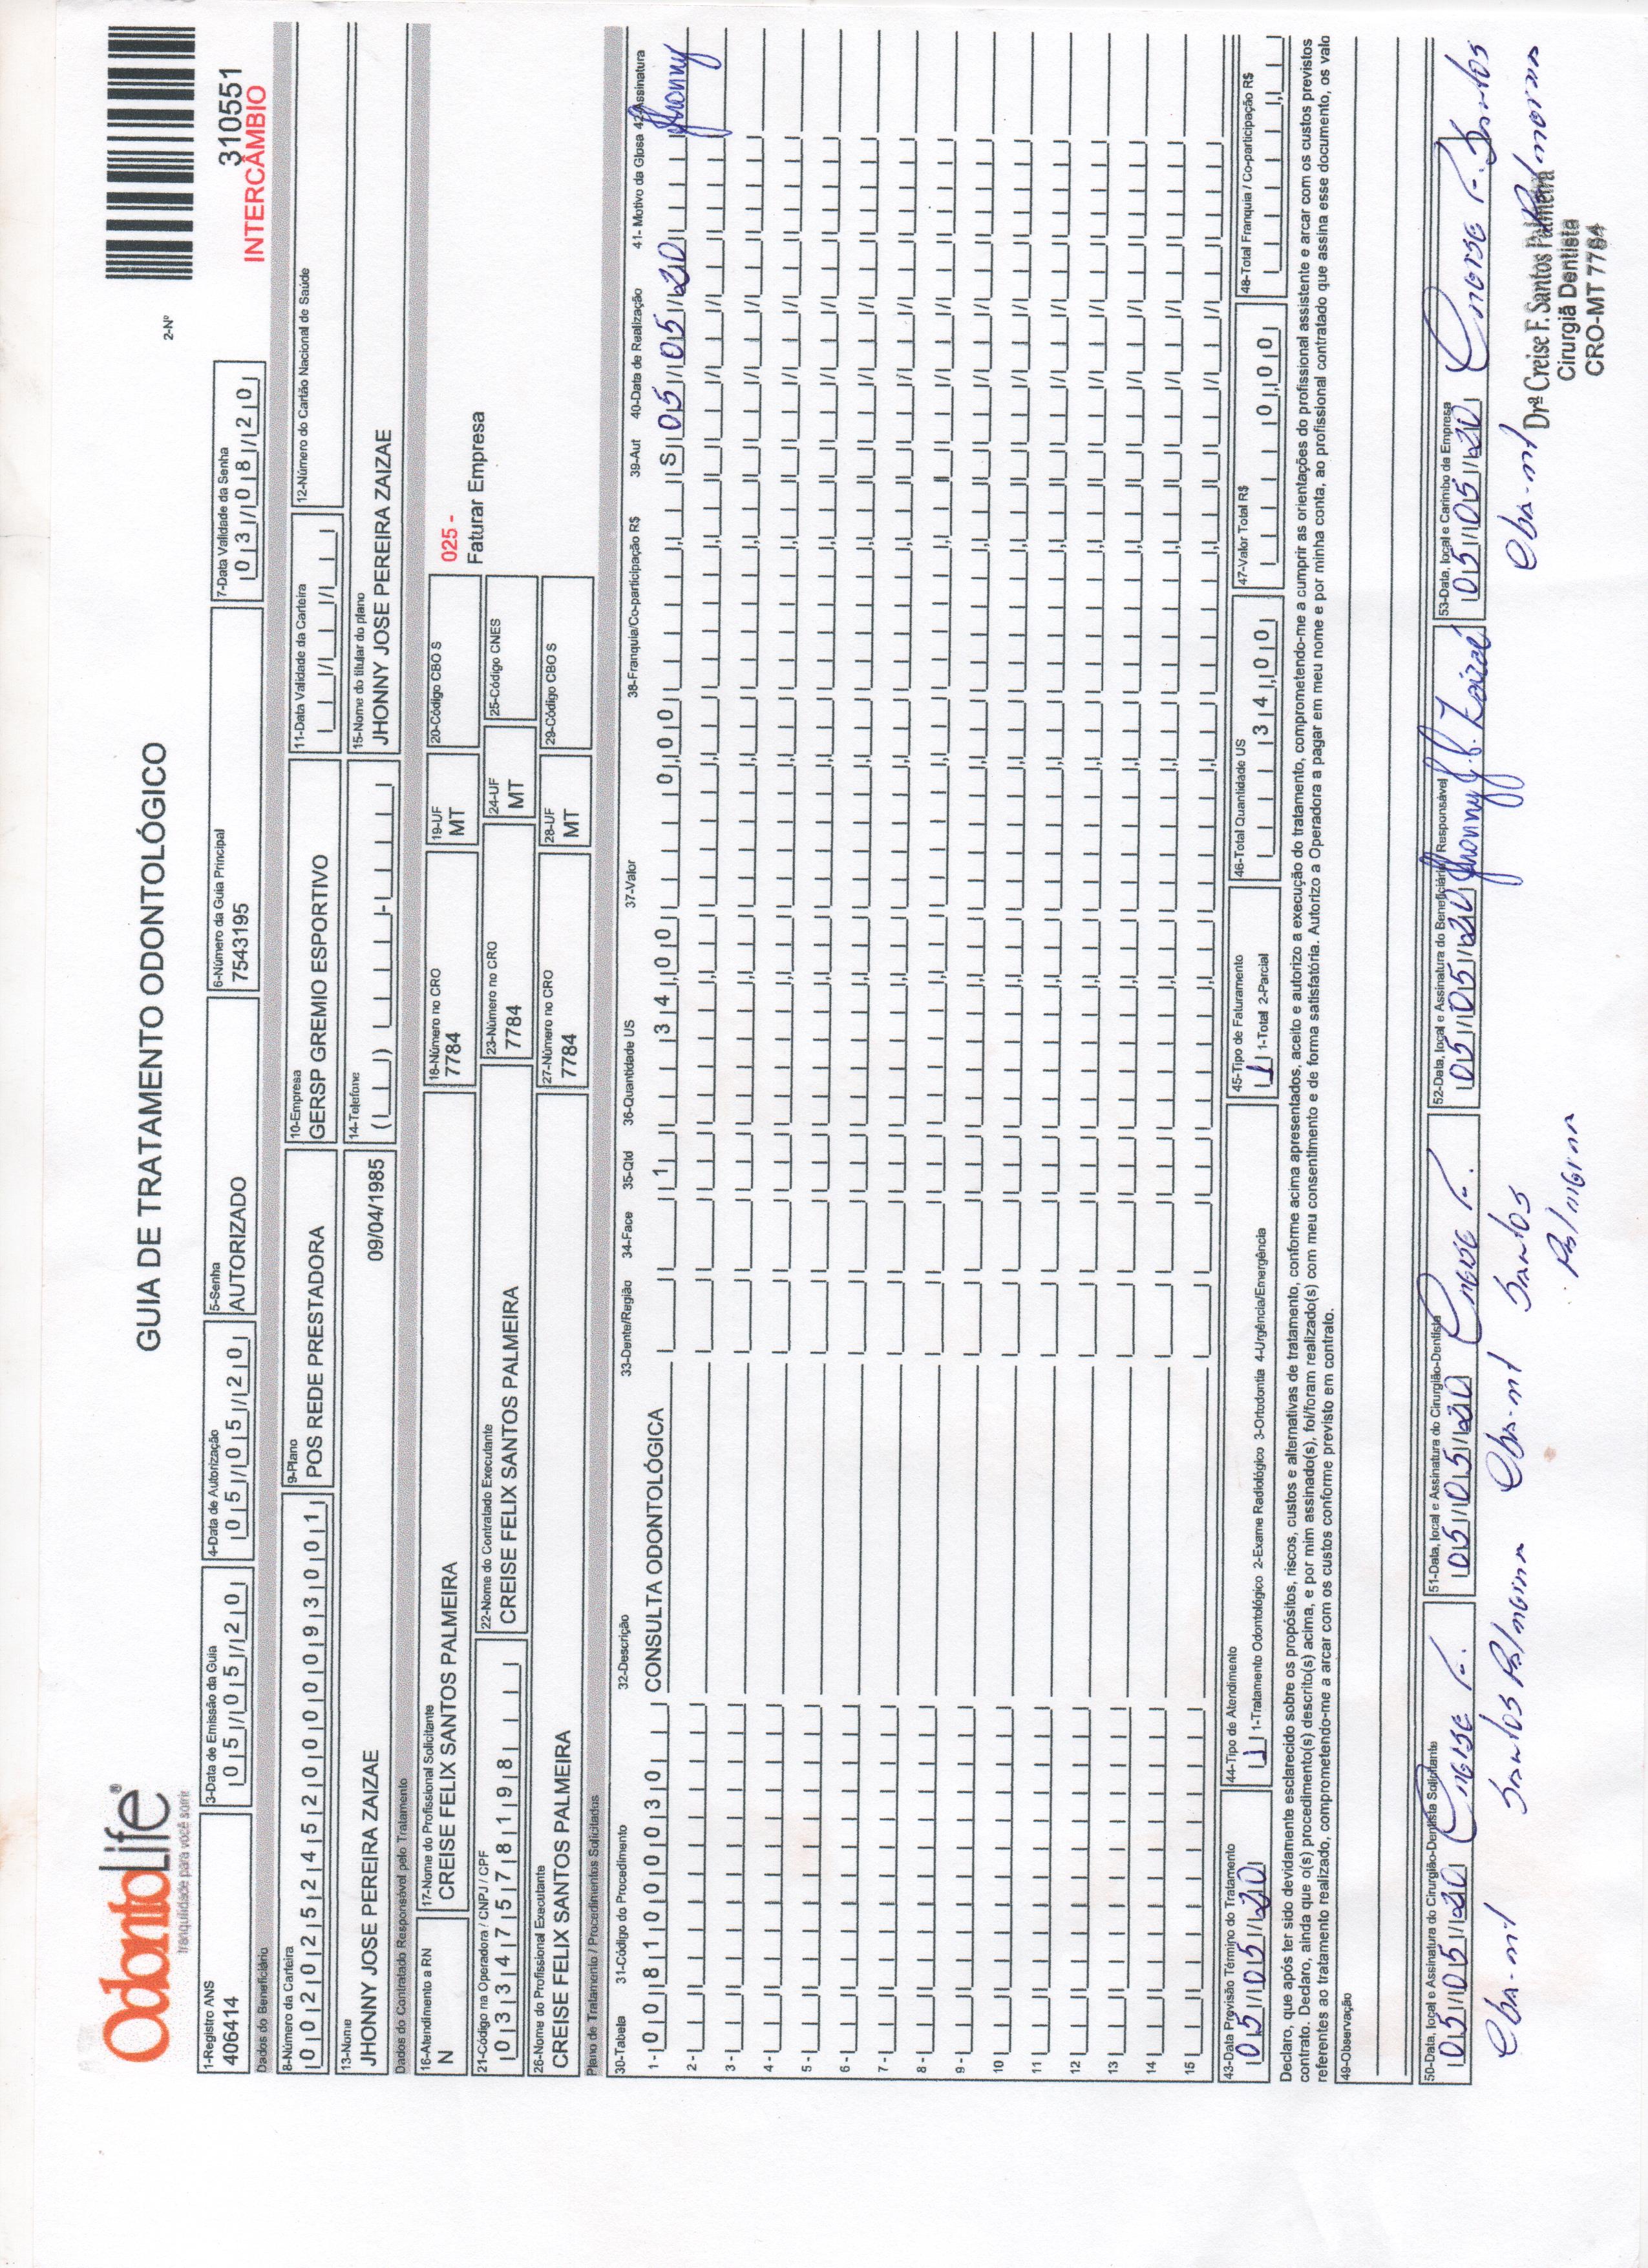 OdontoLife®
tranquilidade para você sorrir
GUIA DE TRATAMENTO ODONTOLÓGICO
2-Nº
310551
INTERCÂMBIO
1-Registro ANS
406414
3-Data de Emissão da Guia
05/05/20
4-Data de Autorização
05/05/20
5-Senha
AUTORIZADO
6-Número da Guia Principal
7543195
7-Data Validade da Senha
03/08/20
Dados do Beneficiário
8-Número da Carteira
00202524520000093001
9-Plano
POS REDE PRESTADORA
10-Empresa
GERSP GREMIO ESPORTIVO
11-Data Validade da Carteira
12-Número do Cartão Nacional de Saúde
13-Nome
JHONNY JOSE PEREIRA ZAIZAE
09/04/1985
14-Telefone
15-Nome do titular do plano
JHONNY JOSE PEREIRA ZAIZAE
Dados do Contratado Responsável pelo Tratamento
16-Atendimento a RN
N
17-Nome do Profissional Solicitante
CREISE FELIX SANTOS PALMEIRA
18-Número no CRO
7784
19-UF
MT
20-Código CBO S
025 -
Faturar Empresa
21-Código na Operadora / CNPJ / CPF
03347578198
22-Nome do Contratado Executante
CREISE FELIX SANTOS PALMEIRA
23-Número no CRO
7784
24-UF
MT
25-Código CNES
26-Nome do Profissional Executante
CREISE FELIX SANTOS PALMEIRA
27-Número no CRO
7784
28-UF
MT
29-Código CBO S
Plano de Tratamento / Procedimentos Solicitados
30-Tabela 31-Código do Procedimento 32-Descrição 33-Dente/Região 34-Face 35-Qtd 36-Quantidade US 37-Valor 38-Franquia/Co-participação R$ 39-Aut 40-Data de Realização 41- Motivo da Glosa 42-Assinatura
1- 00 81000030 CONSULTA ODONTOLÓGICA 1 34,00 0,00 S 05/05/20 Jhonny
2-
3-
4-
5-
6-
7-
8-
9-
10
11
12
13
14
15
43-Data Previsão Término do Tratamento
05/05/20
44-Tipo de Atendimento
1 1-Tratamento Odontológico 2-Exame Radiológico 3-Ortodontia 4-Urgência/Emergência
45-Tipo de Faturamento
1 1-Total 2-Parcial
46-Total Quantidade US
34,00
47-Valor Total R$
0,00
48-Total Franquia / Co-participação R$
Declaro, que após ter sido devidamente esclarecido sobre os propósitos, riscos, custos e alternativas de tratamento, conforme acima apresentados, aceito e autorizo a execução do tratamento, comprometendo-me a cumprir as orientações do profissional assistente e arcar com os custos previstos
contrato. Declaro, ainda que o(s) procedimento(s) descrito(s) acima, e por mim assinado(s), foi/foram realizado(s) com meu consentimento e de forma satisfatória. Autorizo a Operadora a pagar em meu nome e por minha conta, ao profissional contratado que assina esse documento, os valo
referentes ao tratamento realizado, comprometendo-me a arcar com os custos conforme previsto em contrato.
49-Observação
50-Data, local e Assinatura do Cirurgião-Dentista Solicitante
05/05/20 Creise F.
Cba-mt Santos Palmeira
51-Data, local e Assinatura do Cirurgião-Dentista
05/05/20 Creise F.
Cba-mt Santos
Palmeira
52-Data, local e Assinatura do Beneficiário/Responsável
05/05/20 Jhonny J. P. Zaizaé
53-Data, local e Carimbo da Empresa
05/05/20 Creise F. Santos
Cba-mt Palmeira
Drª Creise F. Santos Palmeira
Cirurgiã Dentista
CRO-MT 7784